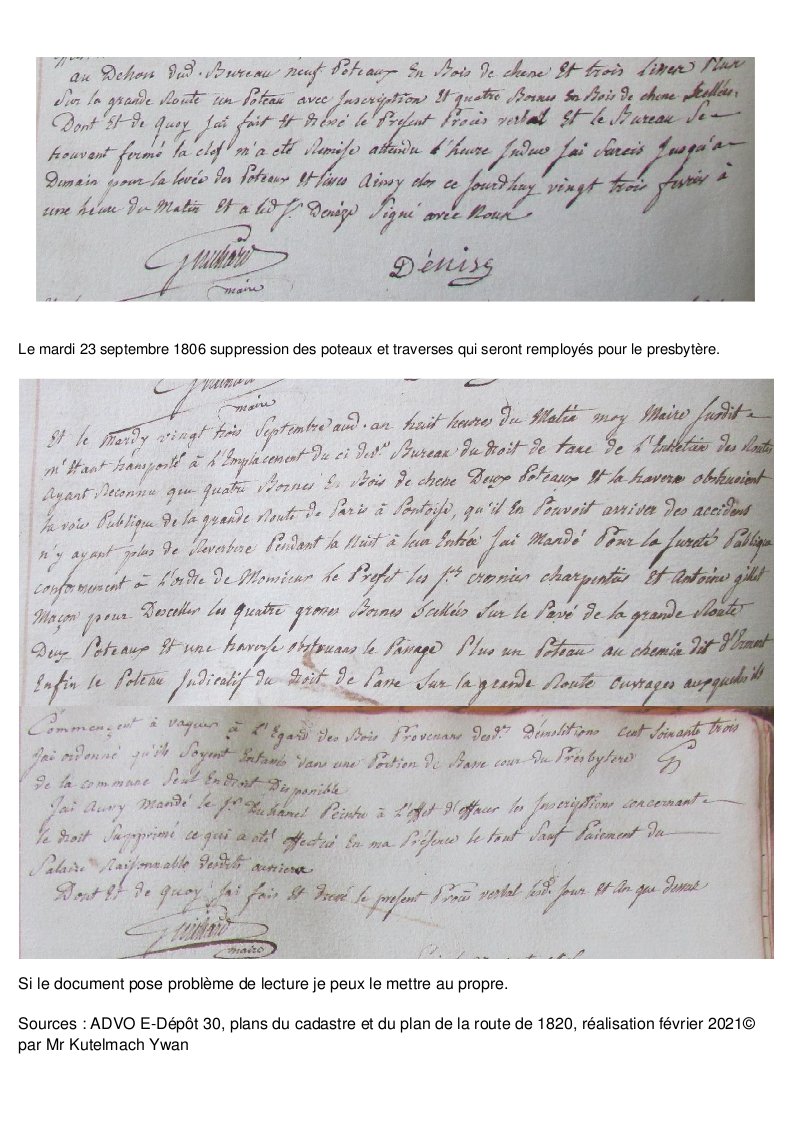 au Dehors dud. Bureau neuf Poteaux En Bois de chene Et trois Lisses Plus
Sur la grande Route un Poteau avec Inscription Et quatre Bornes En Bois de chene Scellées.
Dont Et de Quoy Jai fait Et dressé le Present Procès verbal Et le Bureau Se
trouvant fermé la clef m'a eté Remise attendu l'heure Indue Jai Surcis Jusqu'a
Demain pour la levée des Poteaux Et Lisses Ainsy clos ce Jourdhuy vingt trois à
une heure du Matin Et a led Sr. Denize Signé avec Nous
Guichard
maire
Dénise
Le mardi 23 septembre 1806 suppression des poteaux et traverses qui seront remployés pour le presbytère.
maire
Et le Mardy vingt trois Septembre aud. an huit heures du Matin moy Maire Susdit
m'Etant transporté à L'Emplacement du ci devt. Bureau du droit de taxe de L'Entretien des Routes
Ayant Reconnu que quatre Bornes En Bois de chene Deux Poteaux Et la traverse obstruoient
la voie Publique de la grande Route de Paris à Pontoise, qu'il En Pouvoit arriver des accidens
n'y ayant plus de Reverbere Pendant la Nuit à leur Entrée Jai Mandé Pour la Sureté Publique
conformement à L'ordre de Monsieur Le Prefet les Srs. crosnier charpentier Et Antoine gillet
Maçon pour Desceller les quatre grosses Bornes Scellées Sur le Pavé de la grande Route
Deux Poteaux Et une traverse obstruans le Passage Plus un Poteau au chemin dit d'Ermont
Enfin le Poteau Indicatif du droit de Passe Sur la grande Route ouvrages auxquels ils
Commencent à vaquer à L'Egard des Bois Provenans desd. Démolitions cent soixante trois
Jai ordonné qu'ils Soyent Entassés dans une Portion de Basse cour du Presbytere
de la commune Seul Endroit Disponible
Jai Aussy Mandé le Sr. Duhamel Peintre à L'effet d'effacer les Inscriptions concernant
le droit Supprimé ce qui a eté effectué En ma Présence le tout Sauf Paiement du
Salaire Raisonnable desdits ouvriers
Dont Et de Quoy Jai fais Et dressé le present Procès verbal lesd. Jour Et An que dessus
Guichard
maire
Si le document pose problème de lecture je peux le mettre au propre.
Sources : ADVO E-Dépôt 30, plans du cadastre et du plan de la route de 1820, réalisation février 2021©
par Mr Kutelmach Ywan